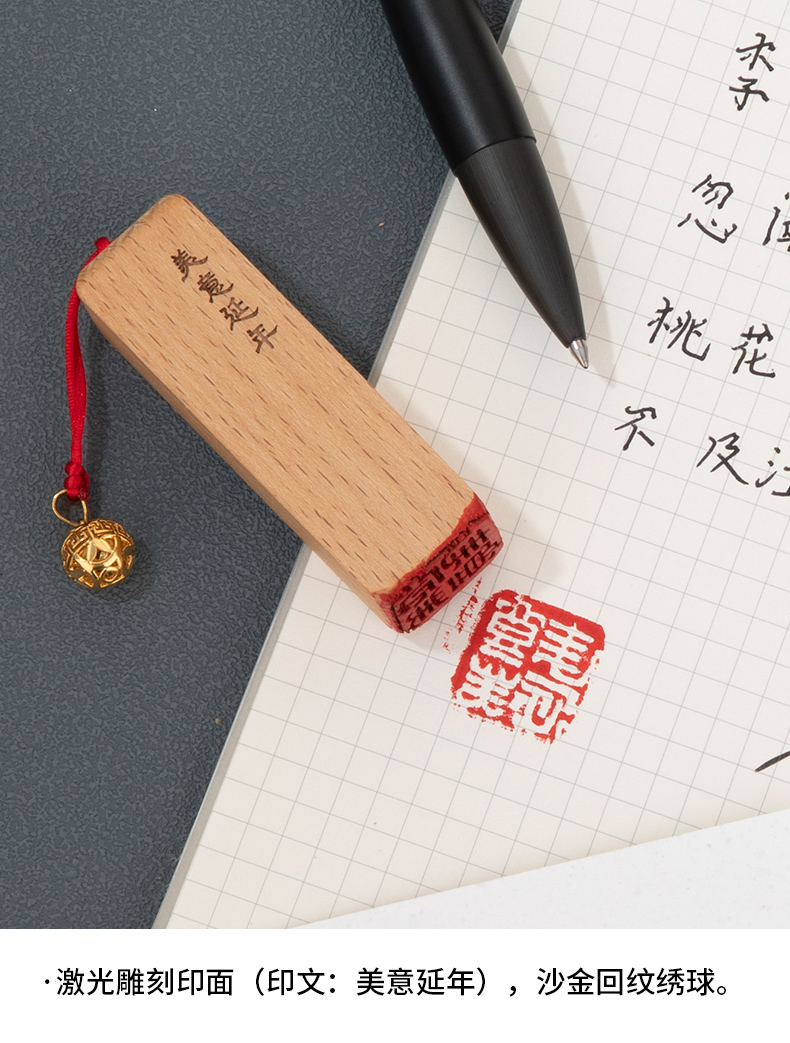 李
忽
桃花
不及汪
美意延年
·激光雕刻印面（印文：美意延年），沙金回纹绣球。